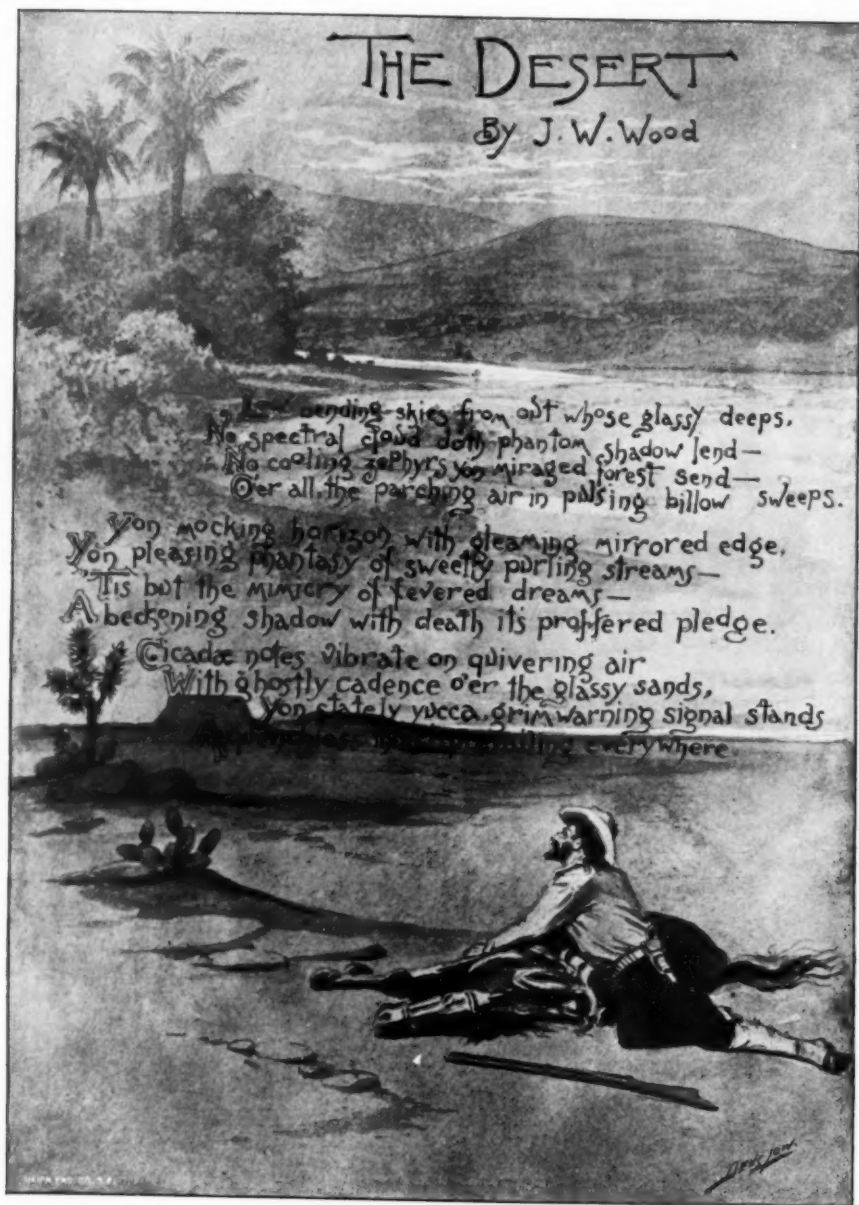 THE DESERT
By J. W. Wood
Low bending skies from out whose glassy deeps,
No spectral cloud doth phantom shadow lend—
No cooling zephyrs yon miraged forest send—
O'er all, the parching air in pulsing billow sweeps.
Yon mocking horizon with gleaming mirrored edge,
Yon pleasing phantasy of sweetly purling streams—
'Tis but the mimicry of fevered dreams—
A beckoning shadow with death its proffered pledge.
Cicadæ notes vibrate on quivering air
With ghostly cadence o'er the glassy sands,
Yon stately yucca, grim warning signal stands
everywhere.
Denslow